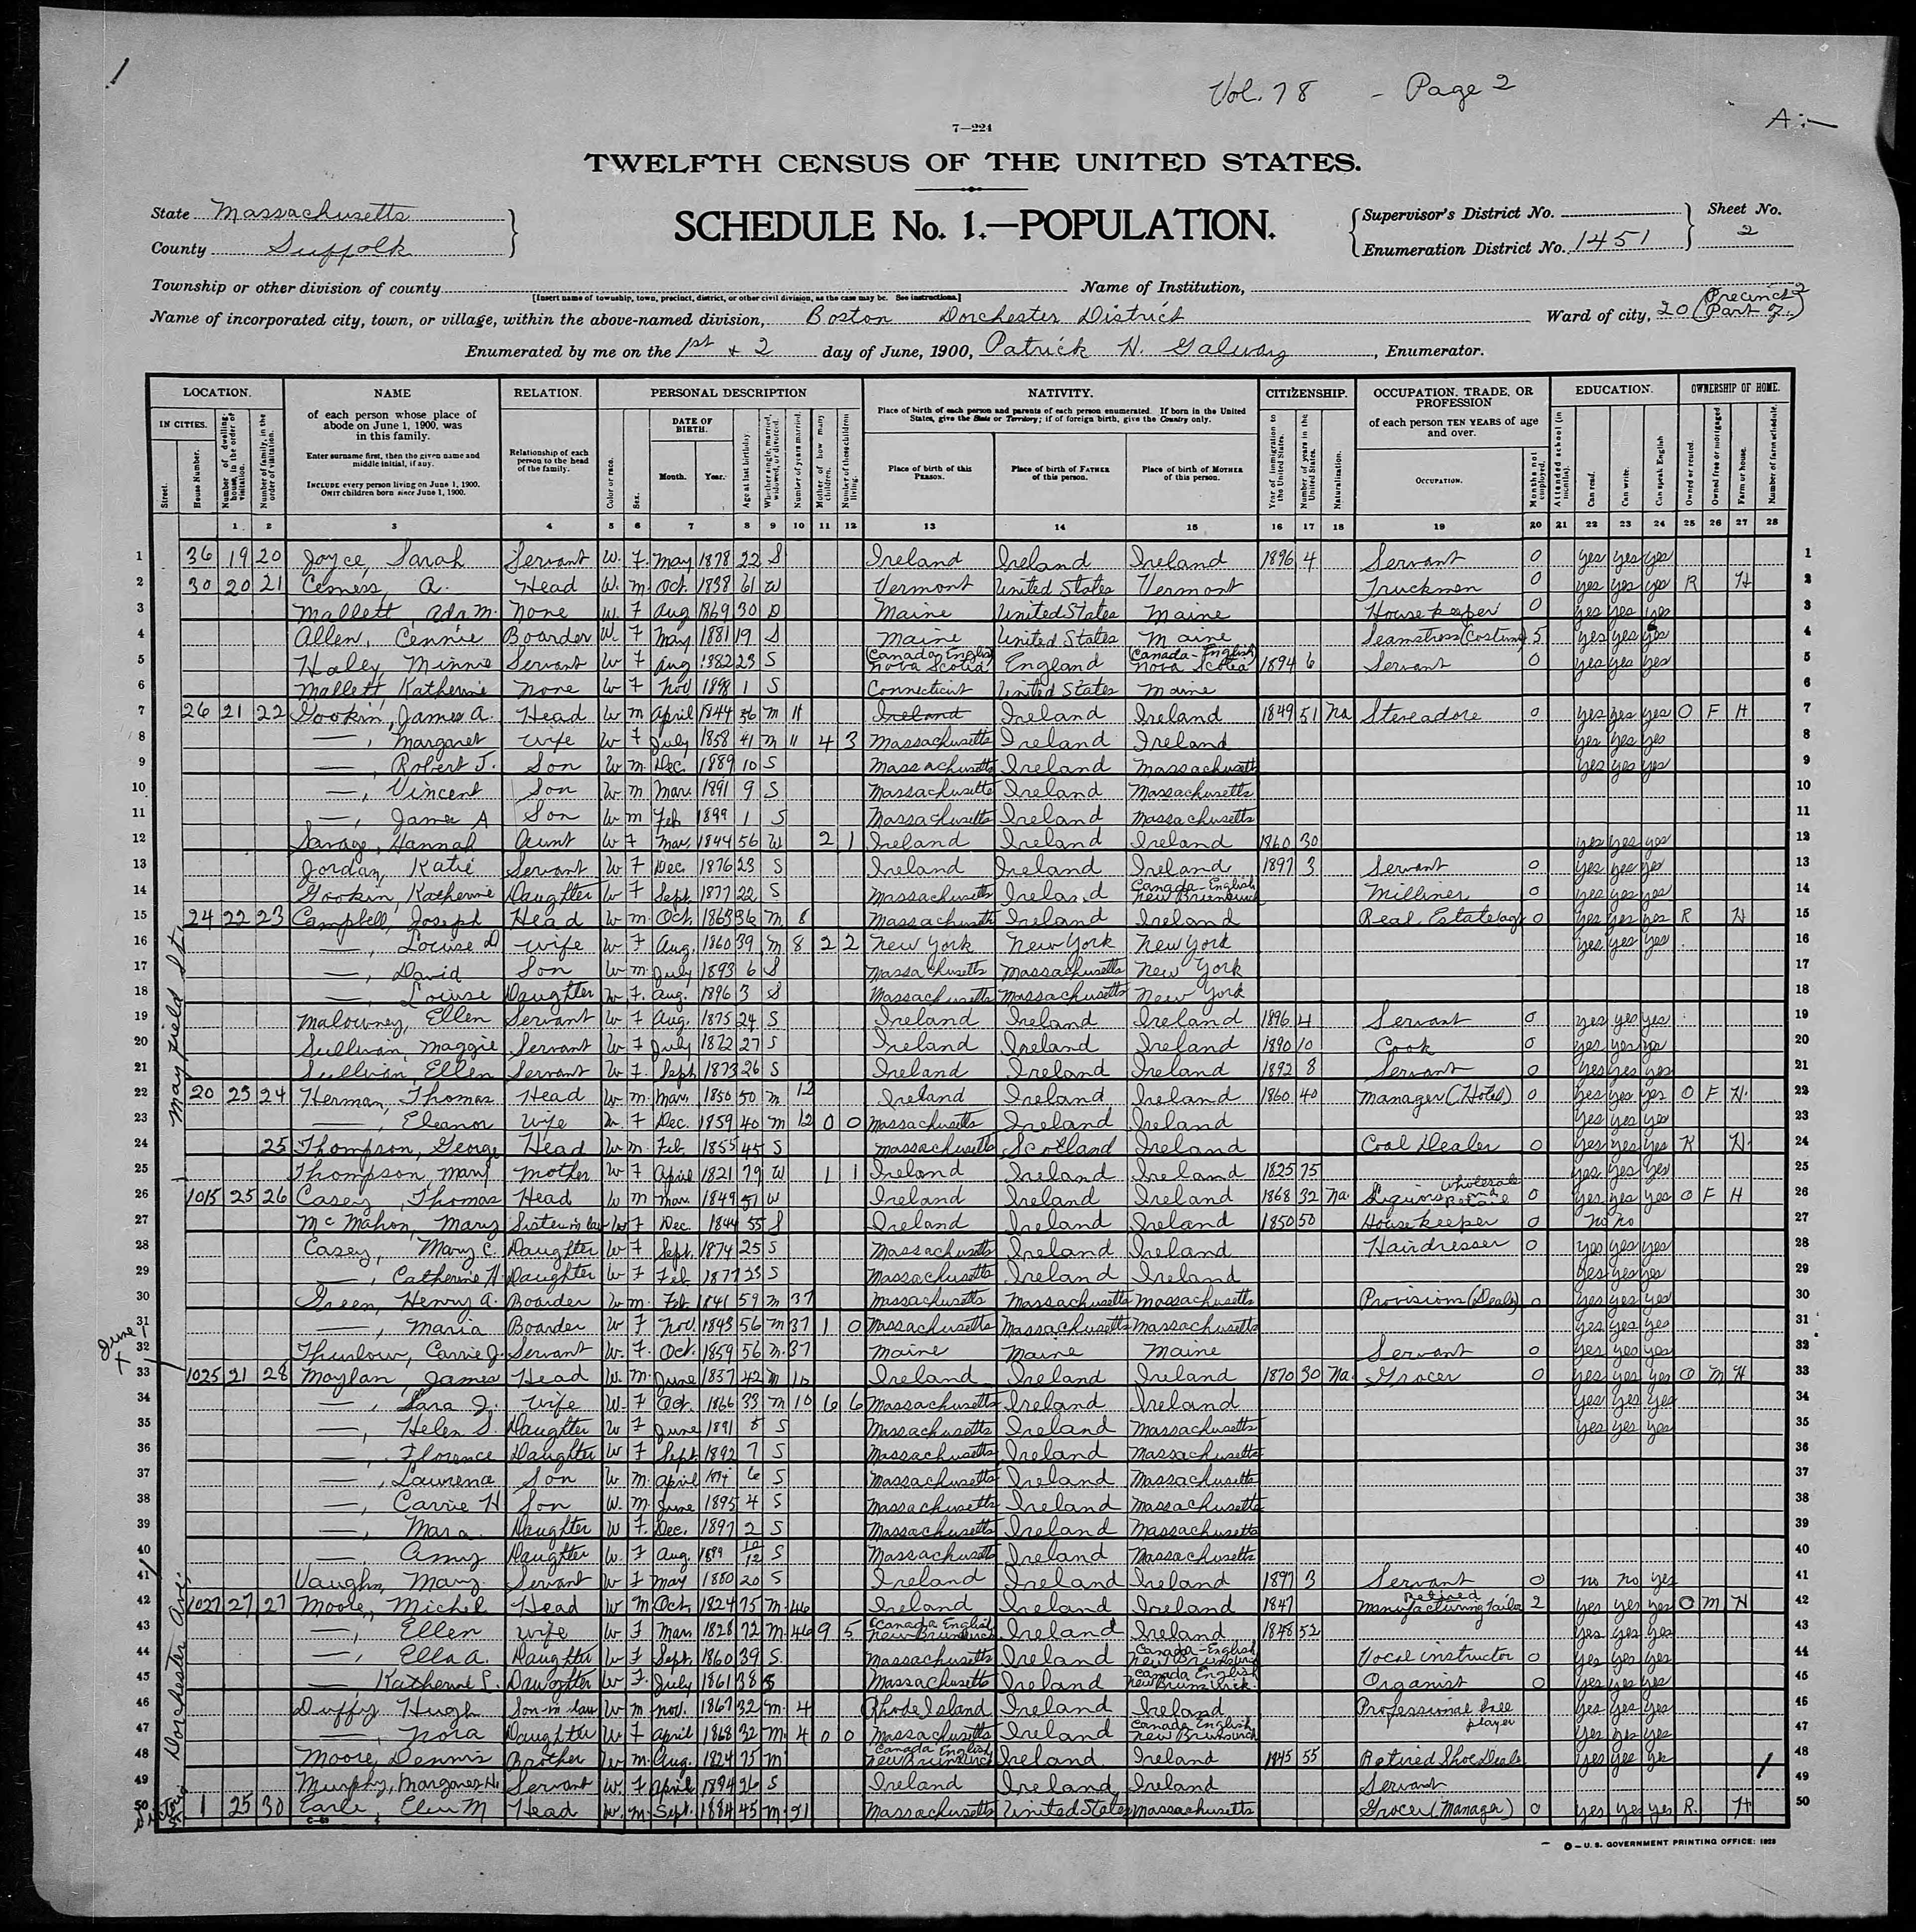 1
Vol. 78 - Page 2
7—224
A:—
TWELFTH CENSUS OF THE UNITED STATES.
State Massachusetts
County Suffolk
SCHEDULE No. 1.—POPULATION.
Supervisor's District No.
Enumeration District No. 1451
Sheet No.
2
Township or other division of county
[Insert name of township, town, precinct, district, or other civil division, as the case may be. See instructions.]
Name of Institution,
Name of incorporated city, town, or village, within the above-named division, Boston Dorchester District
Ward of city, 20 (Precinct 2 Part of.)
Enumerated by me on the 1st & 2 day of June, 1900, Patrick H. Galway, Enumerator.
LOCATION. NAME RELATION. PERSONAL DESCRIPTION NATIVITY. CITIZENSHIP. OCCUPATION, TRADE, OR PROFESSION EDUCATION. OWNERSHIP OF HOME.
IN CITIES. Street. House Number. Number of dwelling house, in the order of visitation. Number of family, in the order of visitation.
of each person whose place of abode on June 1, 1900, was in this family.
Enter surname first, then the given name and middle initial, if any.
INCLUDE every person living on June 1, 1900. OMIT children born since June 1, 1900.
Relationship of each person to the head of the family.
Color or race. Sex. DATE OF BIRTH. Month. Year. Age at last birthday. Whether single, married, widowed, or divorced. Number of years married. Mother of how many children. Number of these children living.
Place of birth of each person and parents of each person enumerated. If born in the United States, give the State or Territory; if of foreign birth, give the Country only.
Place of birth of this PERSON. Place of birth of FATHER of this person. Place of birth of MOTHER of this person.
Year of immigration to the United States. Number of years in the United States. Naturalization.
of each person TEN YEARS of age and over.
OCCUPATION. Months not employed.
Attended school (in months). Can read. Can write. Can speak English. Owned or rented. Owned free or mortgaged. Farm or house. Number of farm schedule.
1 2 3 4 5 6 7 8 9 10 11 12 13 14 15 16 17 18 19 20 21 22 23 24 25 26 27 28
1 36 19 20 Joyce, Sarah Servant W. F. May 1878 22 S Ireland Ireland Ireland 1896 4 Servant 0 yes yes yes 1
2 30 20 21 A. Head W. m. Oct. 1838 61 W Vermont United States Vermont Truckman 0 yes yes yes R H 2
3 Mallett, Ada M. None W. F Aug 1869 30 D Maine United States Maine Housekeeper 0 yes yes yes 3
4 Allen, Cennie Boarder W. F May 1881 19 S Maine United States Maine Seamstress (Costume) 5 yes yes yes 4
5 Haley, Minnie Servant W F Aug 1882 23 S Canada English Nova Scotia England Canada-English Nova Scotia 1894 6 Servant 0 yes yes yes 5
6 Mallett, Katherine None W F Nov 1898 1 S Connecticut United States Maine 6
7 26 21 22 Gookin, James A. Head W m April 1844 56 m 11 Ireland Ireland Ireland 1849 51 Na Steveadore 0 yes yes yes O F H 7
8 —, Margaret Wife W F July 1858 41 m 11 4 3 Massachusetts Ireland Ireland yes yes yes 8
9 —, Robert J. Son W m. Dec. 1889 10 S Massachusetts Ireland Massachusetts yes yes yes 9
10 —, Vincent Son W m Mar. 1891 9 S Massachusetts Ireland Massachusetts 10
11 —, James A Son W m Feb 1899 1 S Massachusetts Ireland Massachusetts 11
12 Savage, Hannah Aunt W F Mar. 1844 56 W 2 1 Ireland Ireland Ireland 1860 30 yes yes yes 12
13 Jordan, Katie Servant W F Dec. 1876 23 S Ireland Ireland Ireland 1897 3 Servant 0 yes yes yes 13
14 Gookin, Katherine Daughter W F Sept 1877 22 S Massachusetts Ireland Canada-English New Brunswick Milliner 0 yes yes yes 14
15 24 22 23 Campbell, Joseph Head W m. Oct. 1863 36 m. 8 Massachusetts Ireland Ireland Real Estate ag 0 yes yes yes R H 15
16 —, Louise D Wife W F Aug. 1860 39 m 8 2 2 New York New York New York yes yes yes 16
17 —, David Son W m. July 1893 6 S Massachusetts Massachusetts New York 17
18 —, Louise Daughter W F. Aug. 1896 3 S Massachusetts Massachusetts New York 18
19 Malowney, Ellen Servant W F Aug. 1875 24 S Ireland Ireland Ireland 1896 4 Servant 0 yes yes yes 19
20 Sullivan, Maggie Servant W F July 1872 27 S Ireland Ireland Ireland 1890 10 Cook 0 yes yes yes 20
21 Sullivan Ellen Servant W F. Sept 1873 26 S Ireland Ireland Ireland 1892 8 Servant 0 yes yes yes 21
22 20 23 24 Herman, Thomas Head W m. Mar. 1850 50 m 12 Ireland Ireland Ireland 1860 40 Manager (Hotel) 0 yes yes yes O F H 22
23 —, Eleanor Wife W. F Dec. 1859 40 m 12 0 0 Massachusetts Ireland Ireland yes yes yes 23
24 25 Thompson, George Head W m. Feb. 1855 45 S Massachusetts Scotland Ireland Coal Dealer 0 yes yes yes R H. 24
25 Thompson, Mary Mother W F April 1821 79 W 1 1 Ireland Ireland Ireland 1825 75 yes yes yes 25
26 1015 25 26 Casey, Thomas Head W m Mar. 1849 51 W Ireland Ireland Ireland 1868 32 Na Liquors Wholesale and Retail 0 yes yes yes O F H 26
27 McMahon, Mary Sister in law W F Dec. 1844 55 S Ireland Ireland Ireland 1850 50 Housekeeper 0 no no 27
28 Casey, Mary C. Daughter W F Sept. 1874 25 S Massachusetts Ireland Ireland Hairdresser 0 yes yes yes 28
29 —, Catherine H. Daughter W F Feb 1877 23 S Massachusetts Ireland Ireland yes yes yes 29
30 Green, Henry A. Boarder W m. Feb. 1841 59 m 37 Massachusetts Massachusetts Massachusetts Provisions (Dealer) 0 yes yes yes 30
31 —, Maria Boarder W F Nov. 1843 56 m 37 1 0 Massachusetts Massachusetts Massachusetts yes yes yes 31
32 Thurlow, Carrie J. Servant W. F. Oct. 1859 56 m. 37 Maine Maine Maine Servant 0 yes yes yes 32
33 1025 21 28 Moylan, James Head W. m. June 1857 42 m 10 Ireland Ireland Ireland 1870 30 Na. Grocer 0 yes yes yes O M H 33
34 —, Sara J. Wife W. F Oct. 1866 33 m 10 6 6 Massachusetts Ireland Ireland yes yes yes 34
35 —, Helen S. Daughter W F June 1891 8 S Massachusetts Ireland Massachusetts yes yes yes 35
36 —, Florence Daughter W F Sept. 1892 7 S Massachusetts Ireland Massachusetts 36
37 —, Laurence Son W m. April 6 S Massachusetts Ireland Massachusetts 37
38 —, Carrie H Son W. m. June 1895 4 S Massachusetts Ireland Massachusetts 38
39 —, Mara Daughter W F. Dec. 1897 2 S Massachusetts Ireland Massachusetts 39
40 —, Amy Daughter W. F Aug. 1899 10/12 S Massachusetts Ireland Massachusetts 40
41 Vaughn, Mary Servant W F May 1880 20 S Ireland Ireland Ireland 1897 3 Servant 0 no no yes 41
42 1027 27 27 Moore, Michel Head W m Oct. 1824 75 m. 46 Ireland Ireland Ireland 1847 Retired Manufacturing Tailor 2 yes yes yes O M H 42
43 —, Ellen Wife W F Mar. 1828 72 m. 46 9 5 Canada English New Brunswick Ireland Ireland 1848 52 yes yes yes 43
44 —, Ella A. Daughter W F Sept. 1860 39 S. Massachusetts Ireland Canada-English New Brunswick Vocal instructor 0 yes yes yes 44
45 —, Katherine L. Daughter W F. July 1861 38 S Massachusetts Ireland Canada English New Brunswick. Organist 0 yes yes yes 45
46 Duffy Hugh Son-in-law W m Nov. 1867 32 m. 4 Rhode Island Ireland Ireland Professional ball player yes yes yes 46
47 —, Nora Daughter W. F April 1868 32 m. 4 0 0 Massachusetts Ireland Canada English New Brunswick yes yes yes 47
48 Moore, Dennis Brother W m. Aug. 1824 75 m Canada English New Brunswick Ireland Ireland 1845 55 Retired Shoe Dealer yes yes yes 48
49 Murphy, Margaret H. Servant W. F. April 1894 26 S Ireland Ireland Ireland Servant 49
50 1 25 30 Earle, M Head W. m. Sept. 1884 45 m. 21 Massachusetts United States Massachusetts Grocer (Manager) 0 yes yes yes R. H 50
Mayfield St.
June 1
Dorchester Ave.
C-69
U. S. GOVERNMENT PRINTING OFFICE: 1928